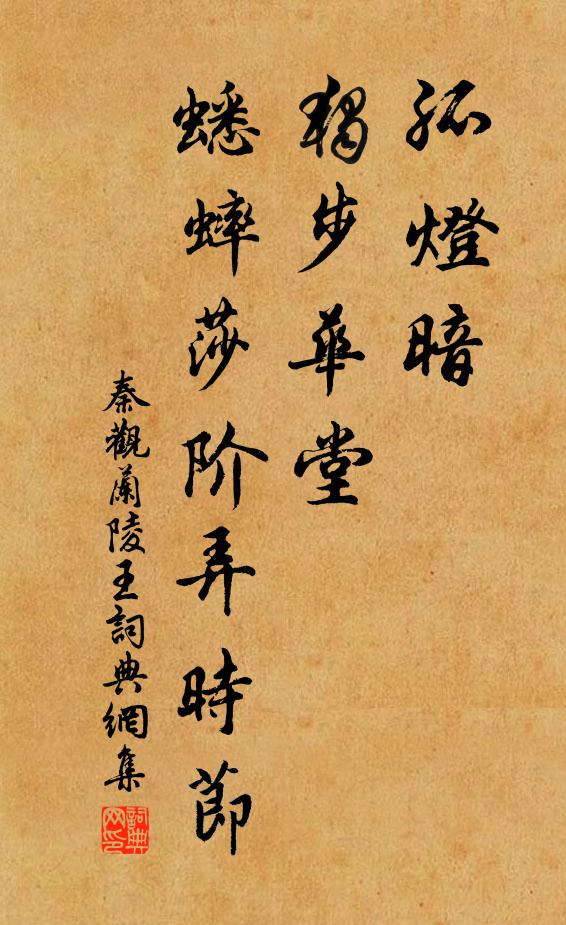 孤燈暗
獨步華堂
蟋蟀莎阶弄時節
秦觀蘭陵王詞典網集
詞典网印